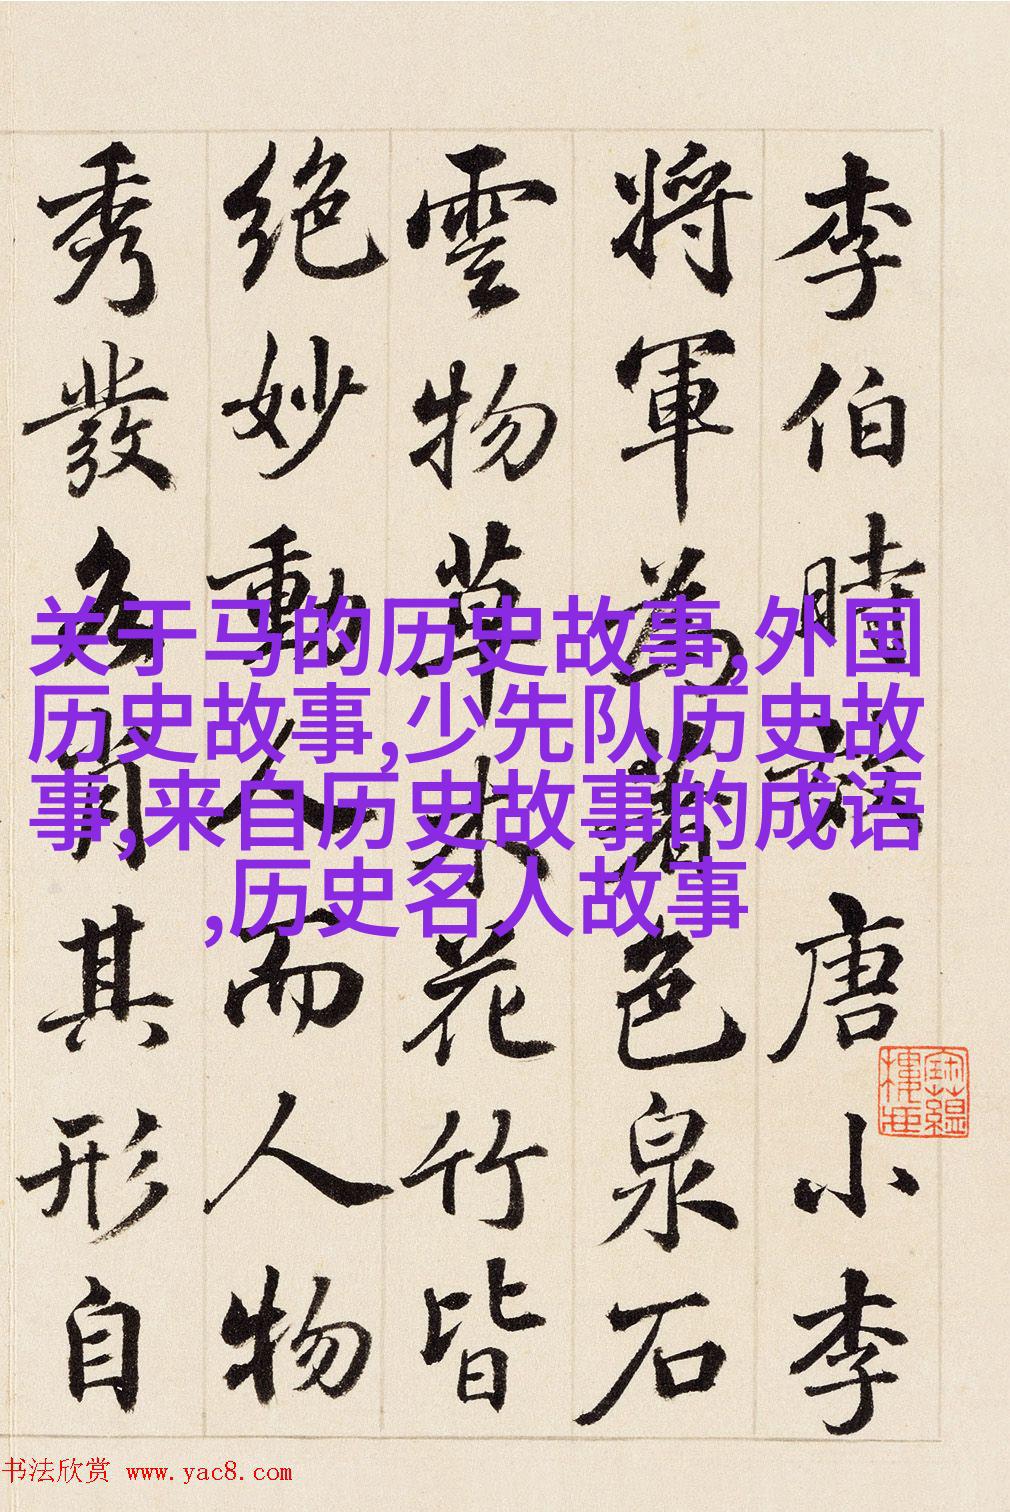 李伯時唐小李
將軍為著色泉石
雲物草木花竹皆
絕妙動人而人物
秀發各肖其形自
关于马的历史故事,外国
历史故事,少先队历史故
事,来自历史故事的成语
,历史名人故事
书法欣赏 www.yac8.com